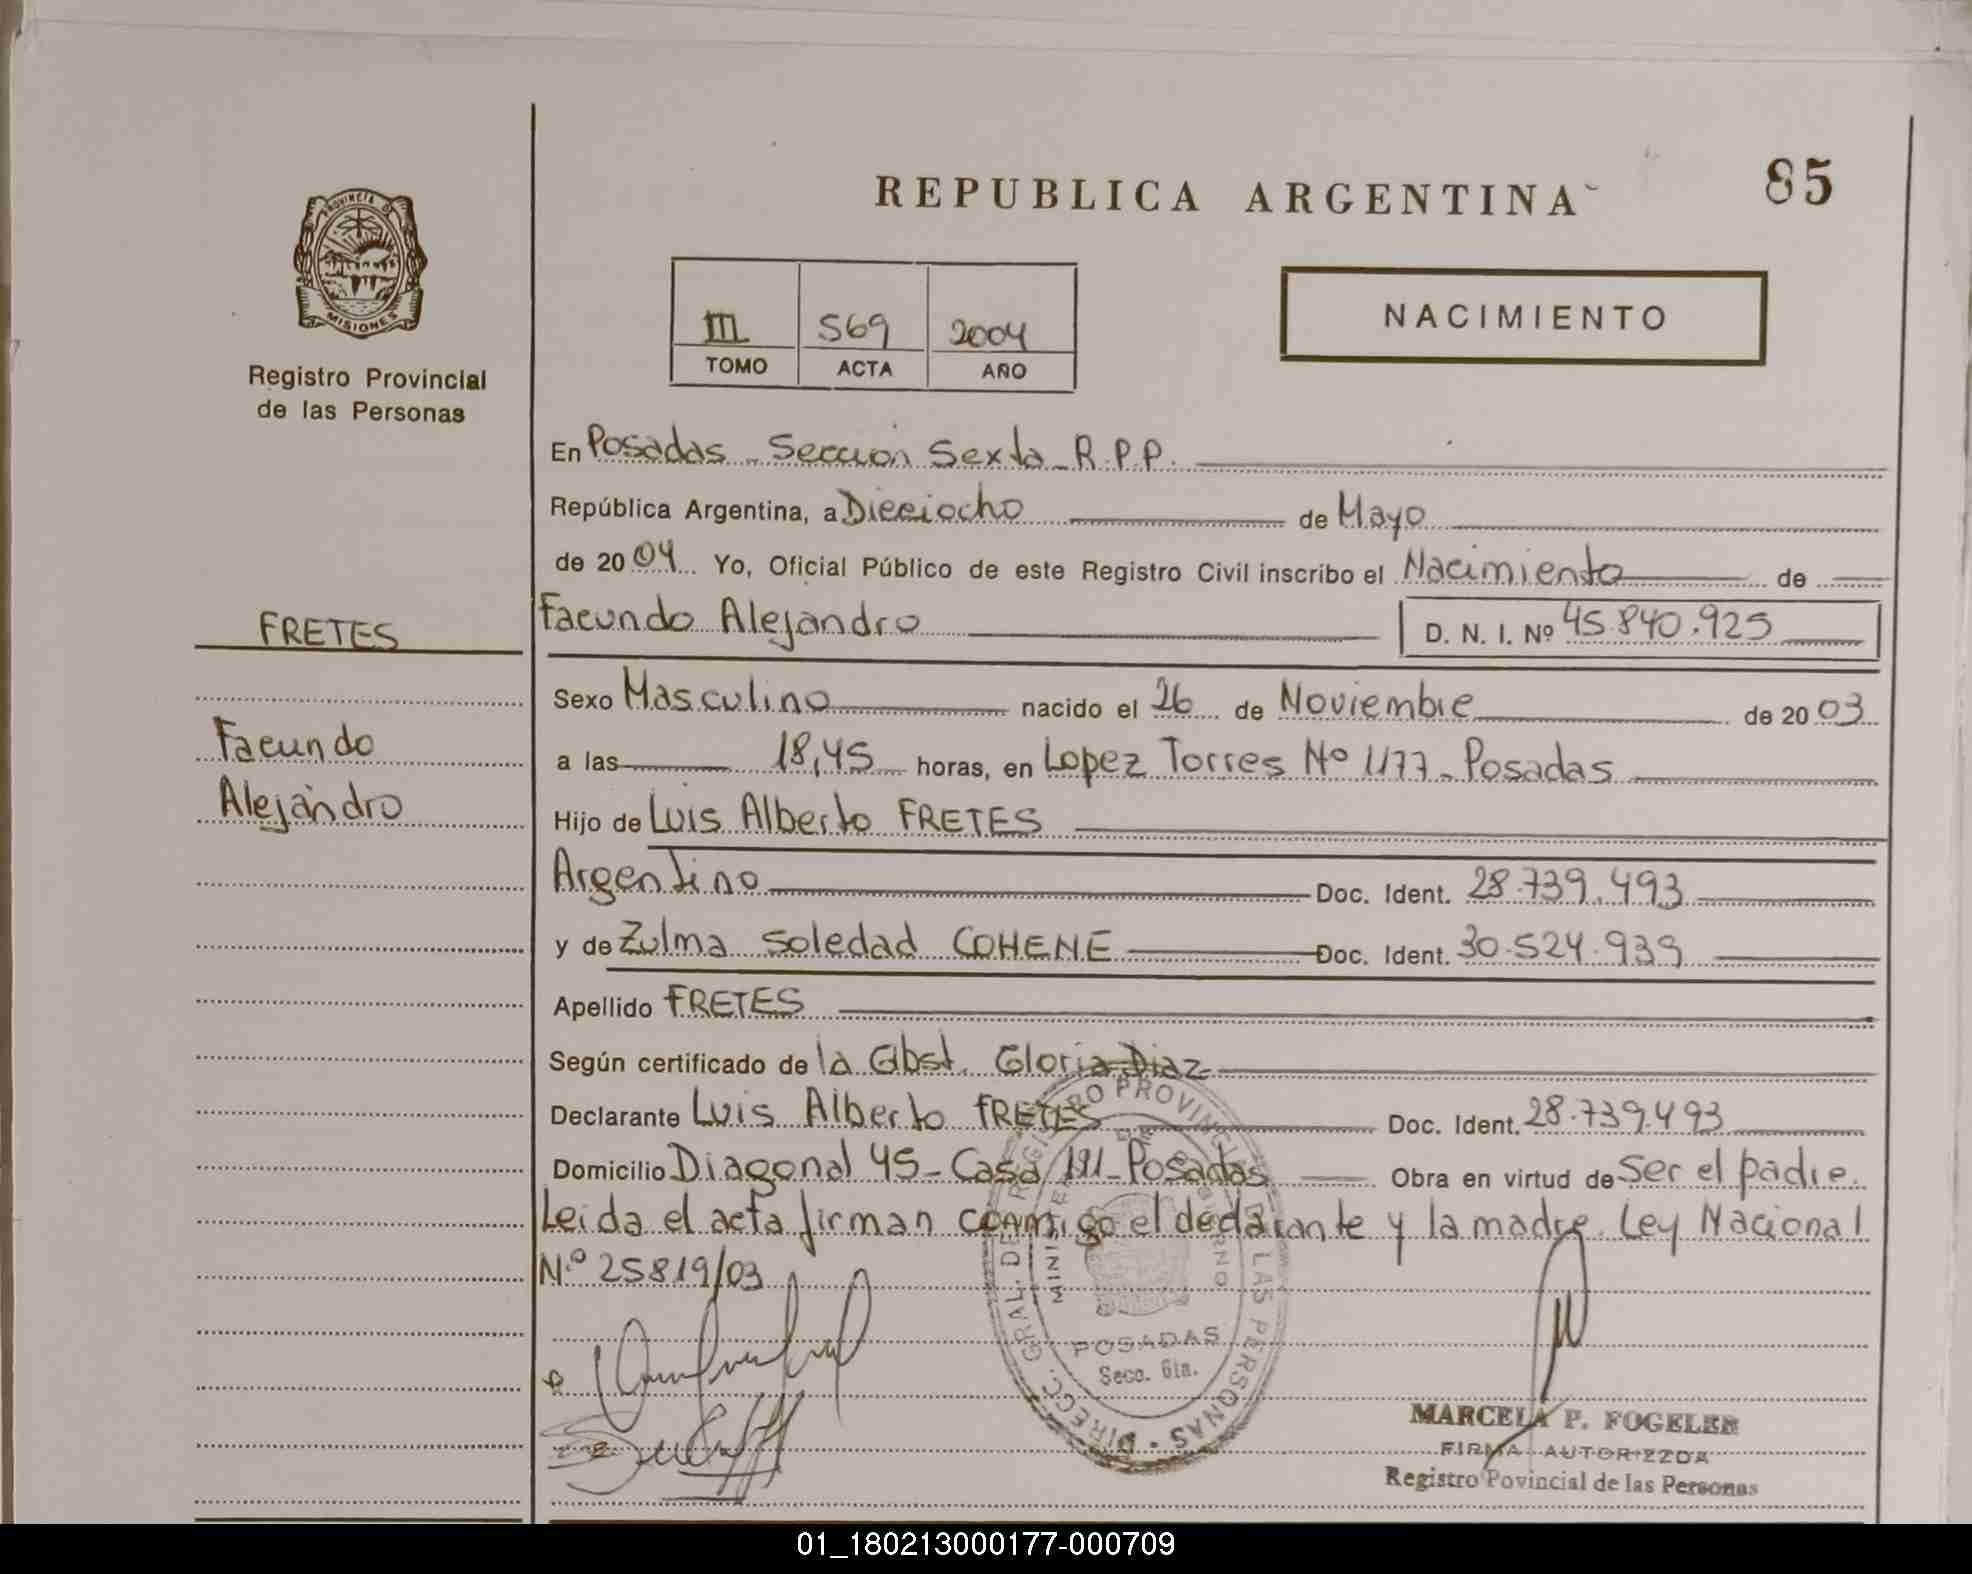 REPUBLICA ARGENTINA
85
PROVINCIA DE
MISIONES
Registro Provincial
de las Personas
III 569 2004
TOMO ACTA AÑO
NACIMIENTO
En Posadas - Seccion Sexta - R.P.P.
República Argentina, a Dieciocho de Mayo
de 2004 Yo, Oficial Público de este Registro Civil inscribo el Nacimiento de
FRETES
Facundo Alejandro D. N. I. Nº 45.840.925
Sexo Masculino nacido el 26 de Noviembre de 2003
Facundo
a las 18,45 horas, en Lopez Torres Nº 1177 - Posadas
Alejandro
Hijo de Luis Alberto FRETES
Argentino Doc. Ident. 28.739.493
y de Zulma Soledad COHENE Doc. Ident. 30.524.939
Apellido FRETES
Según certificado de la Obst. Gloria Diaz
Declarante Luis Alberto FRETES Doc. Ident. 28.739.493
Domicilio Diagonal 45 - Casa 191 - Posadas Obra en virtud de Ser el padre.
Leida el acta firman conmigo el declarante y la madre. Ley Nacional
Nº 25819/03
DIRECC. GRAL. DE REGISTRO PROVINCIAL DE LAS PERSONAS
MINISTERIO DE GOBIERNO
POSADAS
Secc. 6ta.
MARCELA P. FOGELER
FIRMA AUTORIZZDA
Registro Povincial de las Personas
01_180213000177-000709